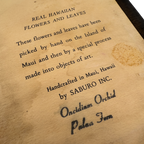 REAL HAWAIIAN
FLOWERS AND LEAVES
These flowers and leaves have been
picked by hand on the Island of
Maui and then by a special process
made into objects of art.
Handcrafted in Maui, Hawaii
by SABURO INC.
Oncidium Orchid
Palaa Fern